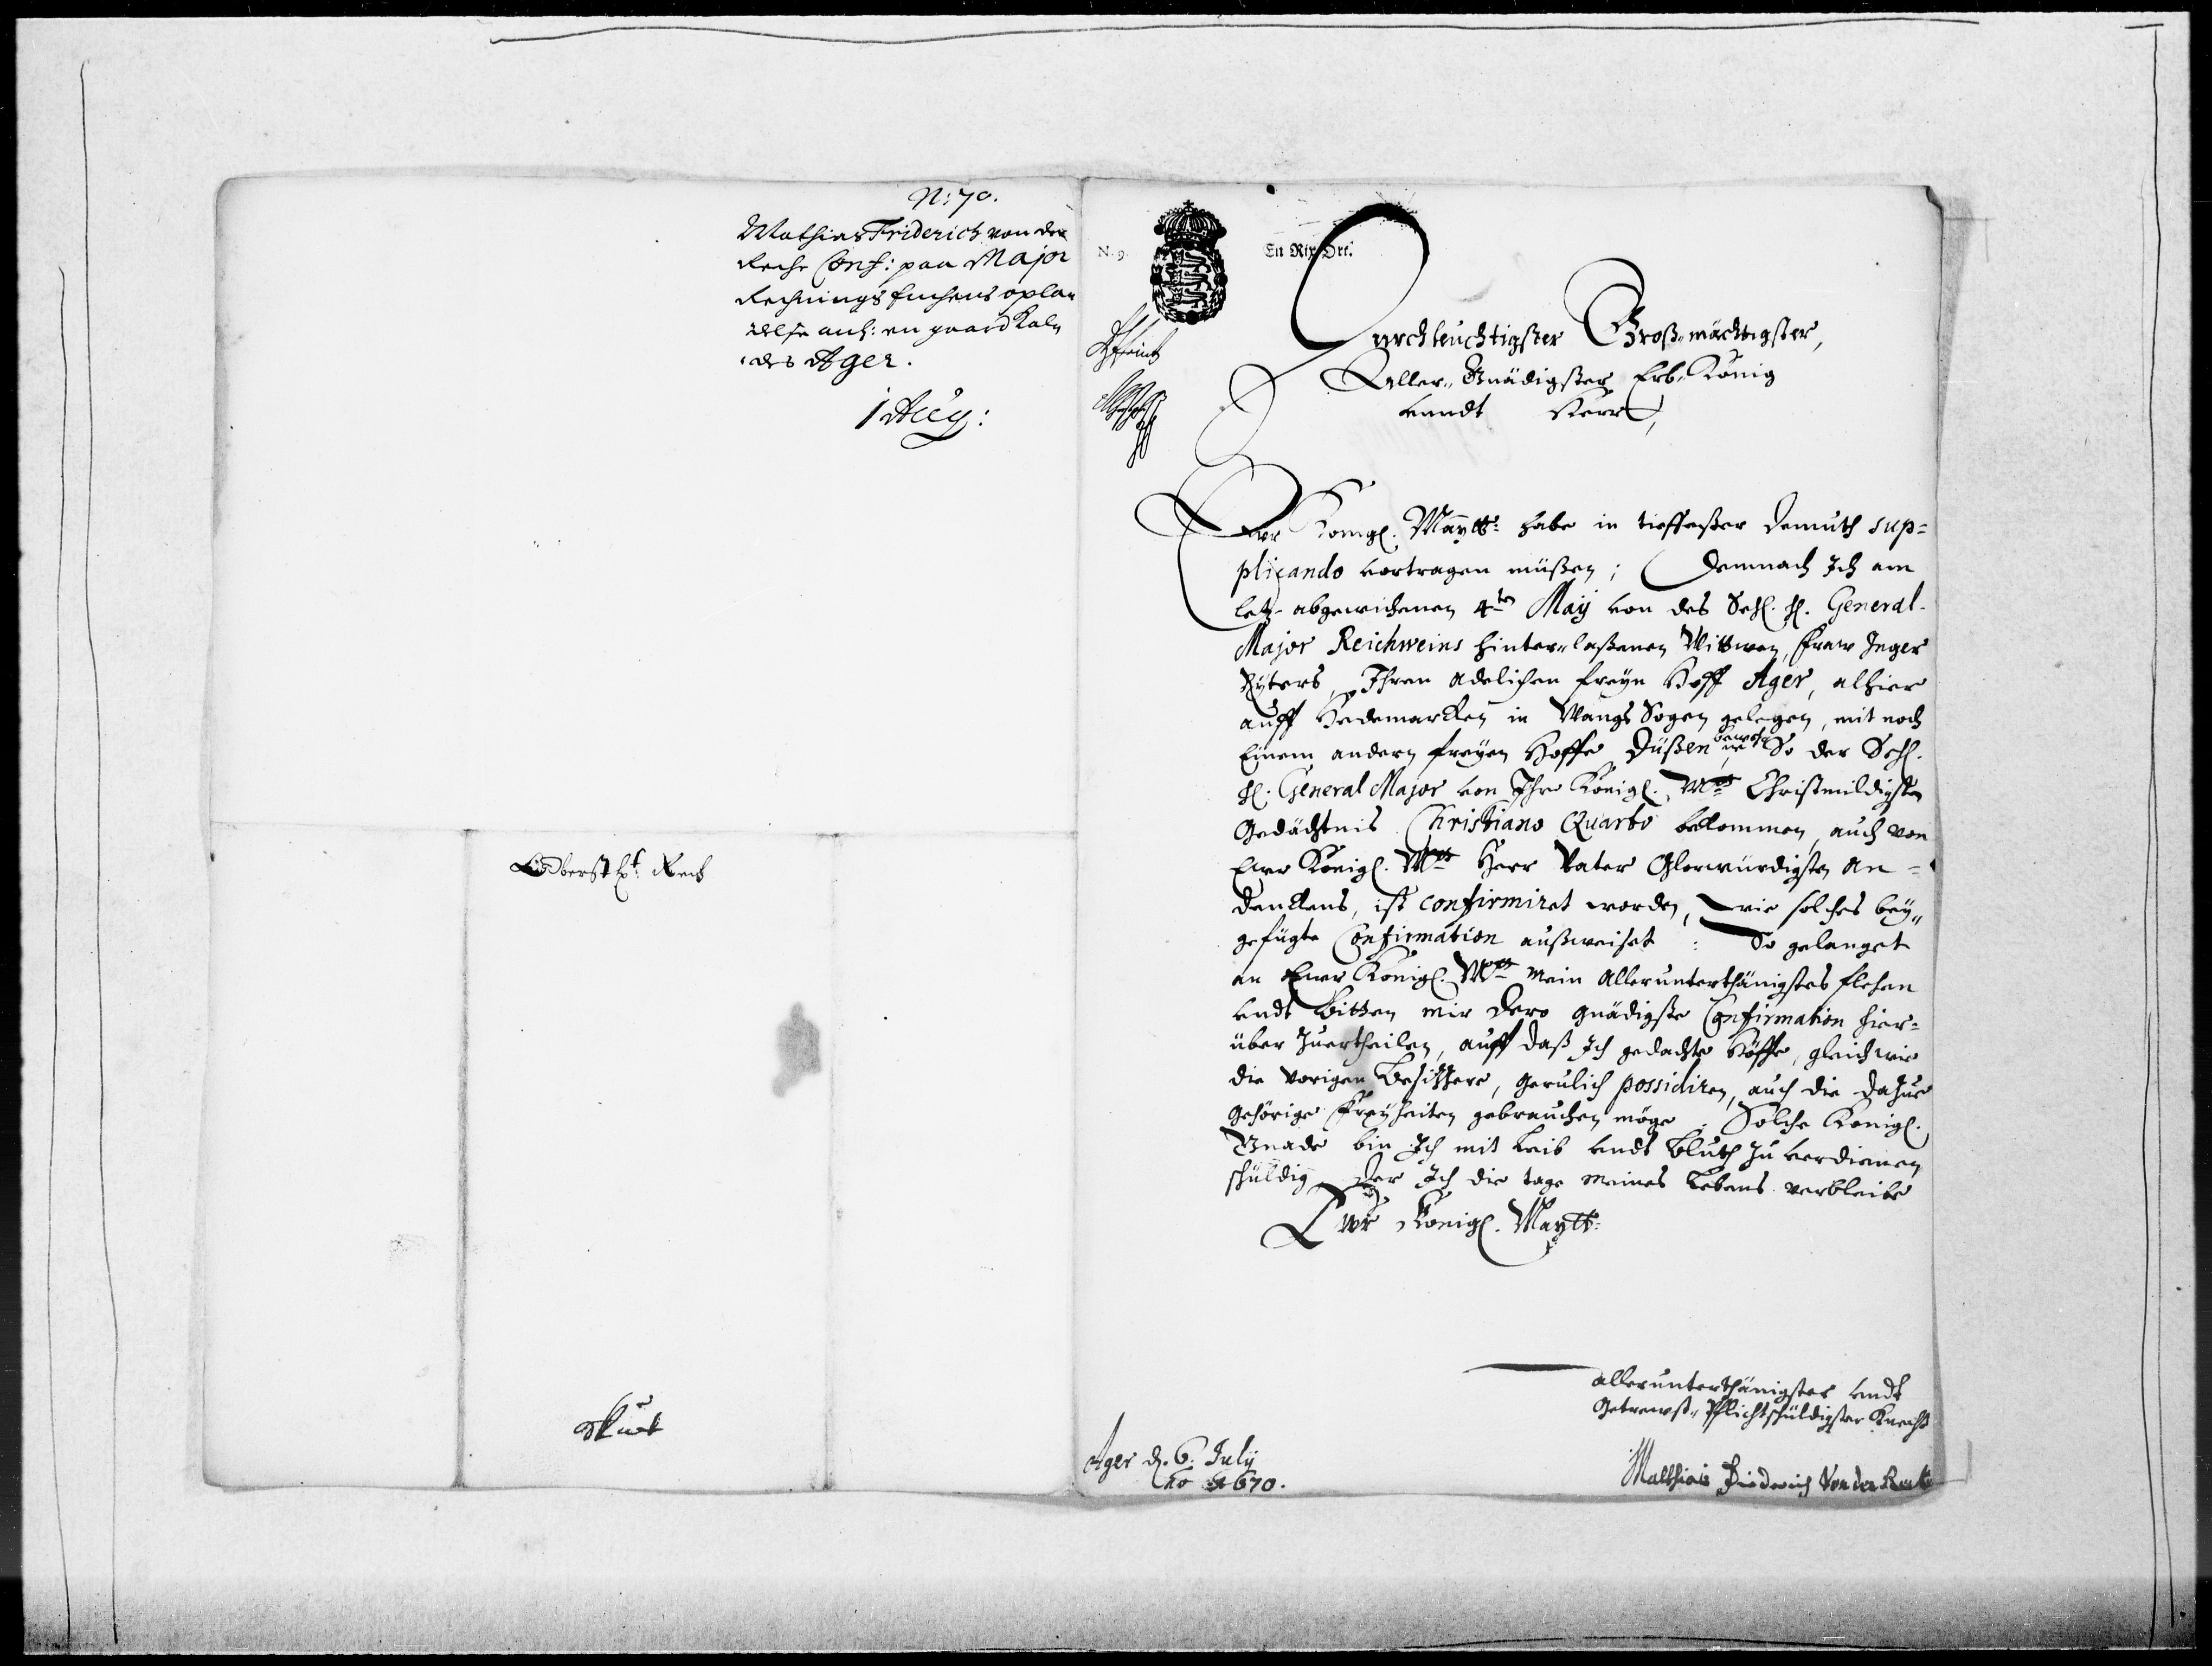 N: 70.
Mathias Friderich von der
Reche Conf: paa Major
Rechnings Enches oplad
else anl: en gaard kaln
des Ager.
1 Aug:
Oberst Lt: Reck
N. 9. En Rix Ort.
Durchleuchtigster Groß-mächtigster,
Aller-Gnädigster Erb-König
vundt Herr,
Ewr Königl. Maytt: habe in tieffester demuth sup=
plicando vortragen müßen; Demnach Ich am
letz-abgewichenen 4ten Maij von des Sehl. H. General-
Major Reichweins hinter-laßenen Wittwen, Fraw Inger
Ryters, Ihren adelichen freyen Hoff Ager, alhier
auff Hedemarken in Wangs Sogen gelegen, mit noch
Einem andern freyen Hoffe Düßen So der Sehl.
H. General Major von Ihr Königl. Mtt Christmildigsten
Gedächtnis Christiano Quarto bekommen, auch von
Ewr Königl. Mtt Herr Vater Glorwürdigsten An=
denckens, ist confirmiret worden, wie solches bey-
gefügte Confirmation außweiset: So gelanget
an Ewr Königl. Mtt mein Allerunterthänigstes flehen
undt bitten mir dero gnädigste Confirmation hier=
über zuertheilen, auff daß Ich gedachte Höffe, gleich wie
die vorigen Besitzere, gerulich possidiren, auch die dazue
gehörige Freyheiten gebrauchen möge. Solche Königl.
Gnade bin Ich mit Leib undt Bluth zu verdienen
schuldig Der Ich die tage meines Lebens verbleibe
Ewr Königl. Maytt:
allerunterthänigster undt
Getrewst-Pflichtschuldigster Knecht
Matthias Friderich Von der Recke
Ager d. 6. July
Ao 1670.